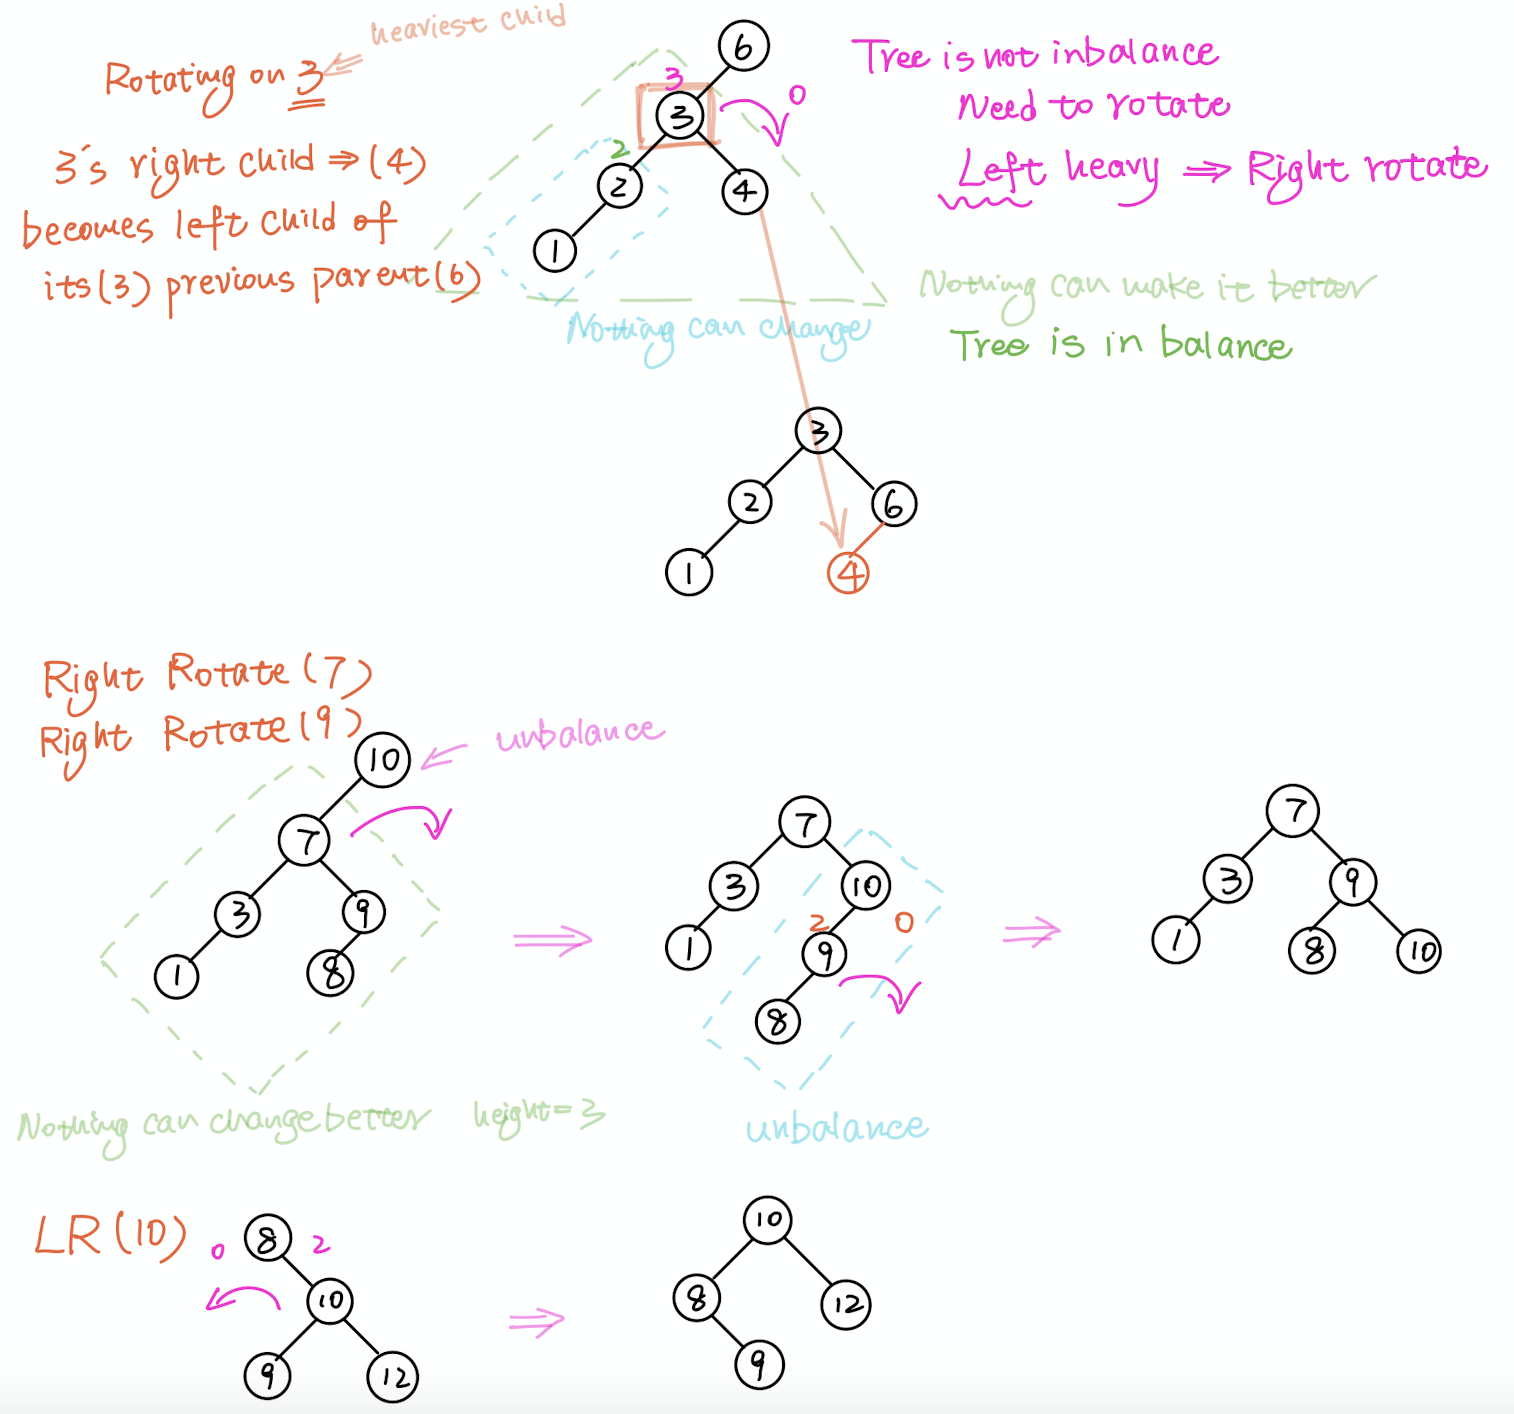 heaviest child
Rotating on 3
3's right child ⇒ (4)
becomes left child of
its(3) previous parent(6)
Tree is not inbalance
Need to rotate
Left heavy ⇒ Right rotate
Nothing can make it better
Tree is in balance
6
3
3
0
2
2
4
1
Nothing can change
3
2
6
1
4
Right Rotate(7)
Right Rotate(9)
unbalance
10
7
3
9
1
8
Nothing can change better height=3
⇒
7
3
10
2
0
1
9
8
unbalance
⇒
7
3
9
1
8
10
LR(10)
0
8
2
10
9
12
⇒
10
8
12
9